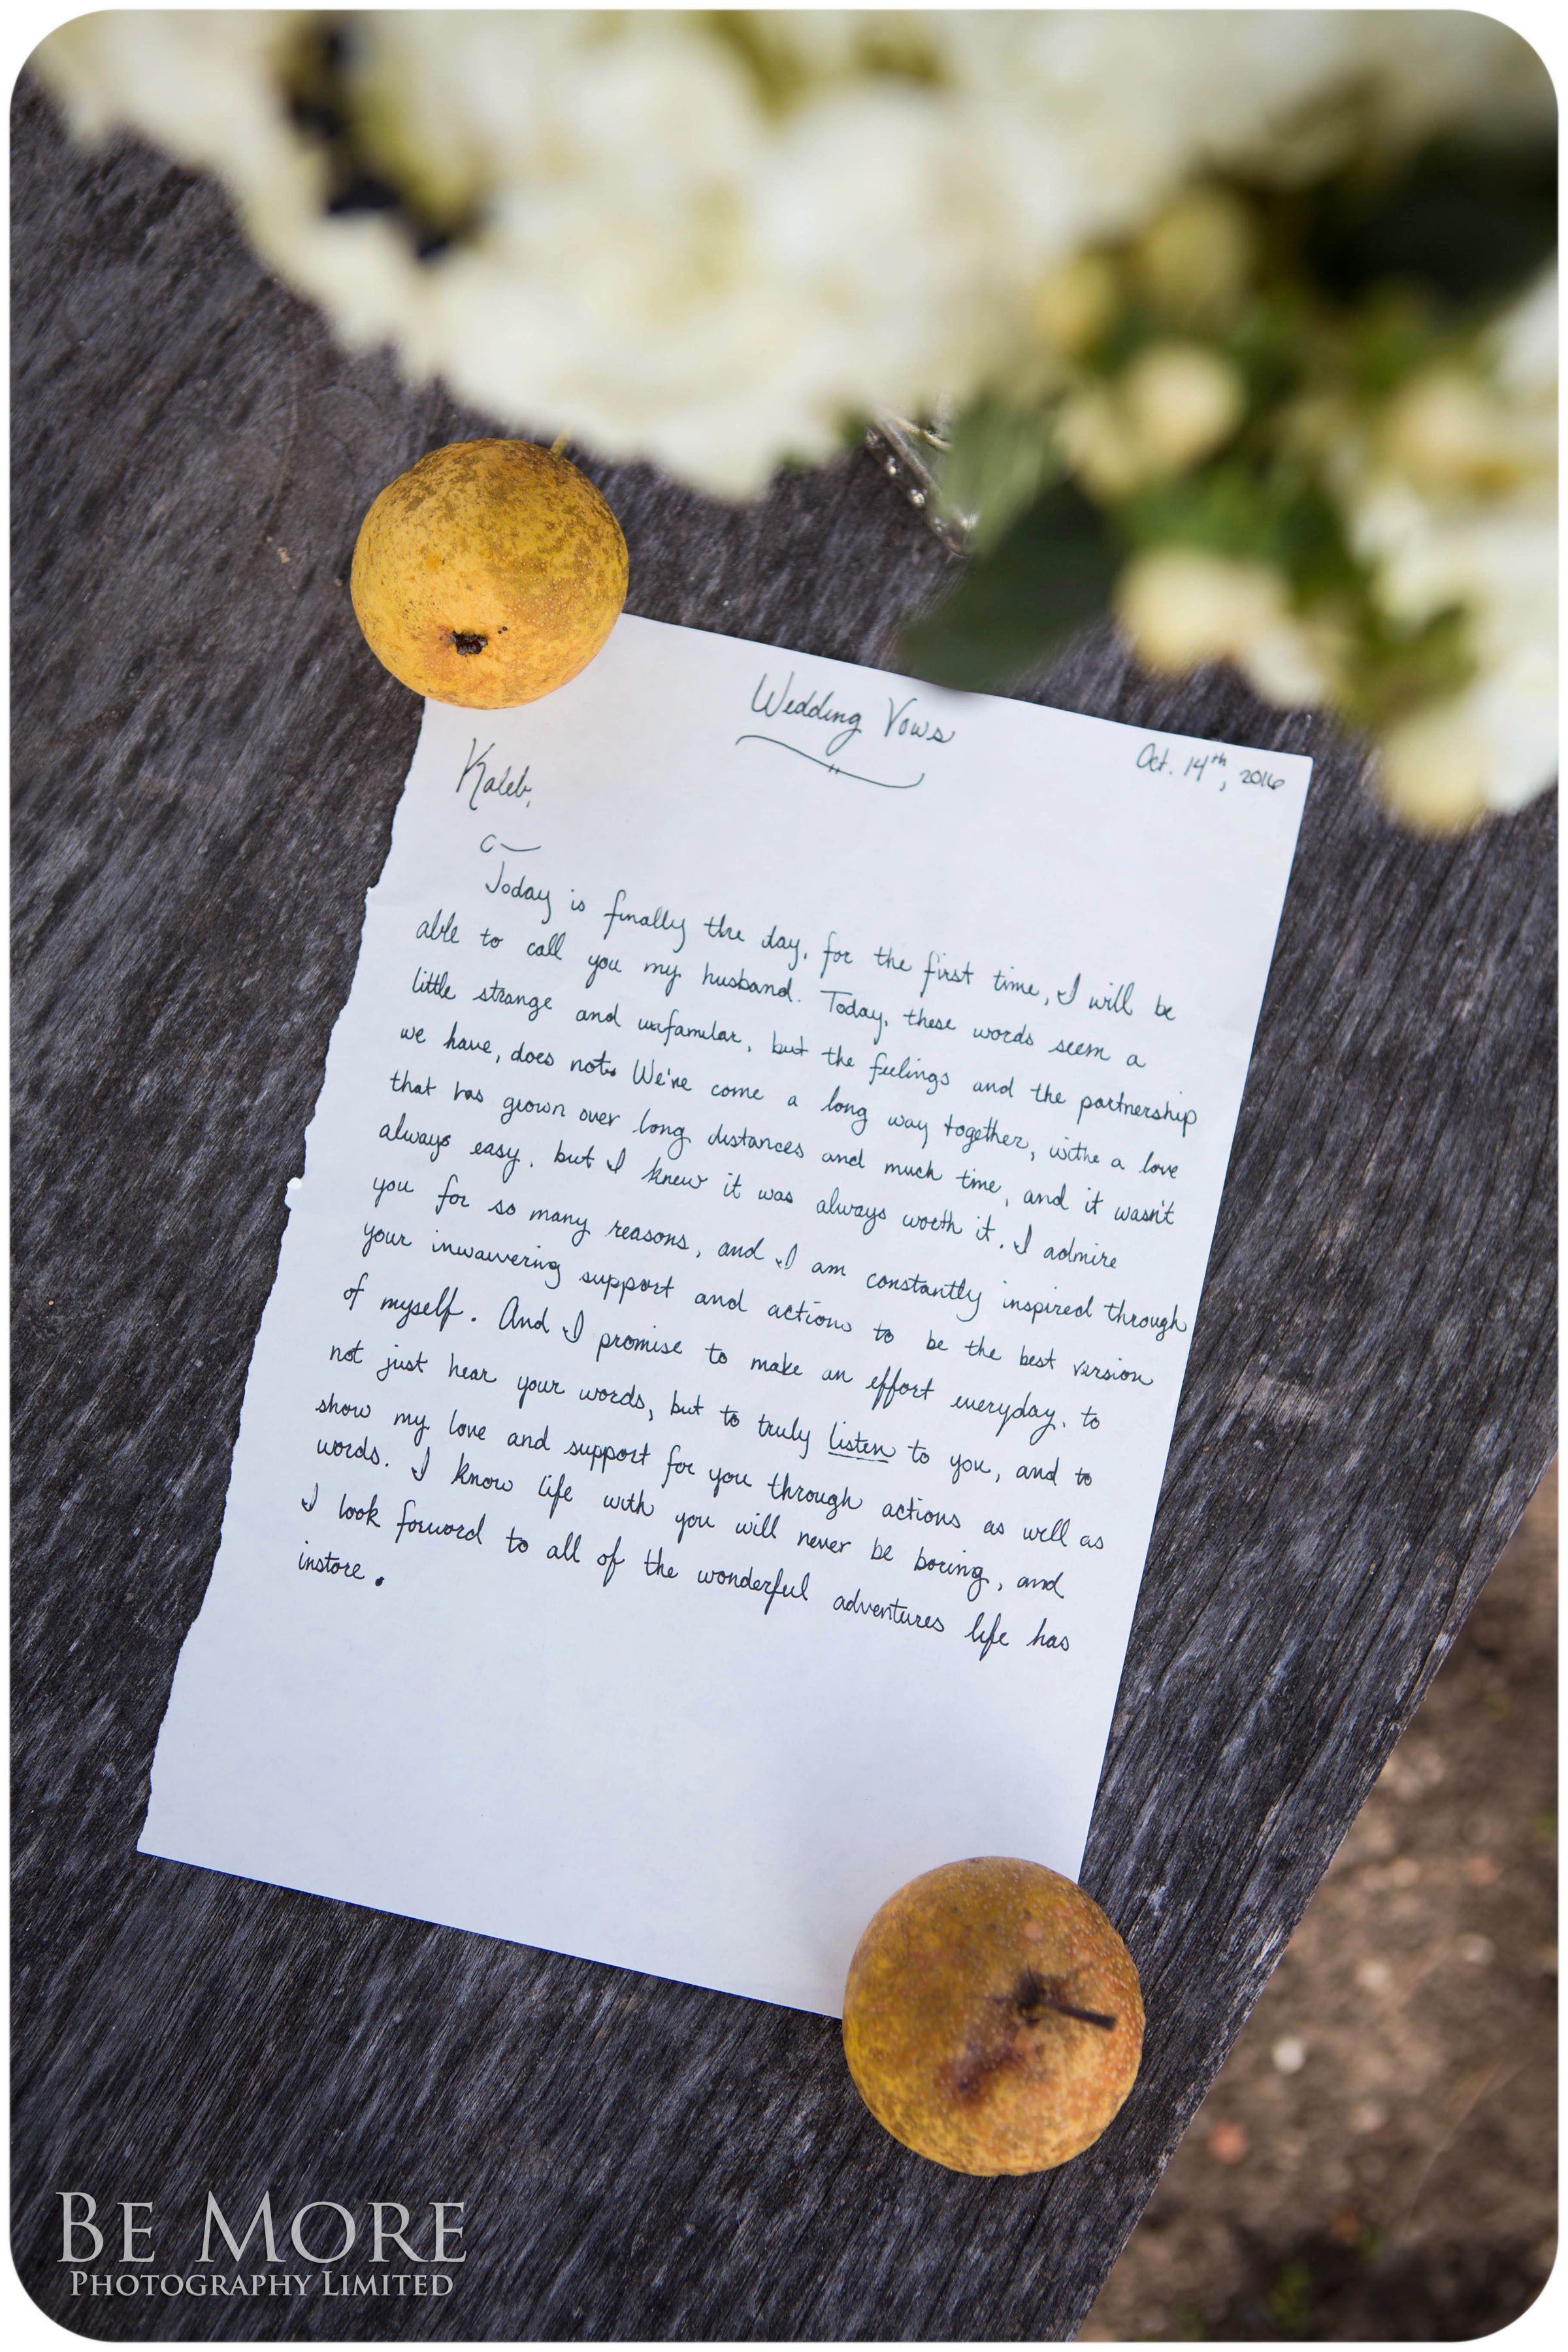 Wedding Vows
Oct. 14th, 2016
Kaleb,
Today is finally the day, for the first time, I will be
able to call you my husband. Today, these words seem a
little strange and unfamilar, but the feelings and the partnership
we have, does not. We've come a long way together, withe a love
that has grown over long distances and much time, and it wasn't
always easy, but I knew it was always worth it. I admire
you for so many reasons, and I am constantly inspired through
your inwavering support and actions to be the best version
of myself. And I promise to make an effort everyday, to
not just hear your words, but to truly listen to you, and to
show my love and support for you through actions as well as
words. I know life with you will never be boring, and
I look forward to all of the wonderful adventures life has
instore.
BE MORE
PHOTOGRAPHY LIMITED